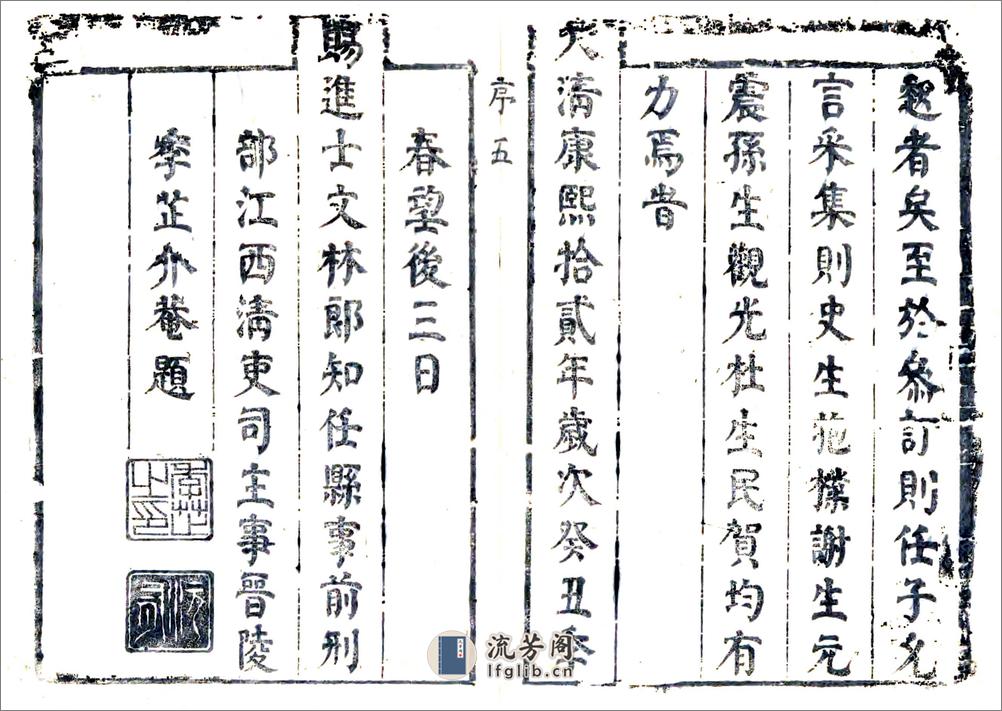 越者矣至於參訂則任子允
言采集則史生施樸謝生元
震孫生觀光杜生民賀均有
力焉旹
大清康熙拾貳年歲次癸丑季
序 五
春望後三日
賜進士文林郎知任縣事前刑
部江西清吏司主事晉陵
季芷介菴題
季芷之印
流芳阁
lfglib.cn